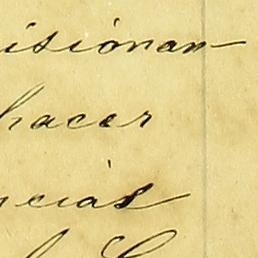 isionan-
hacer
ncias